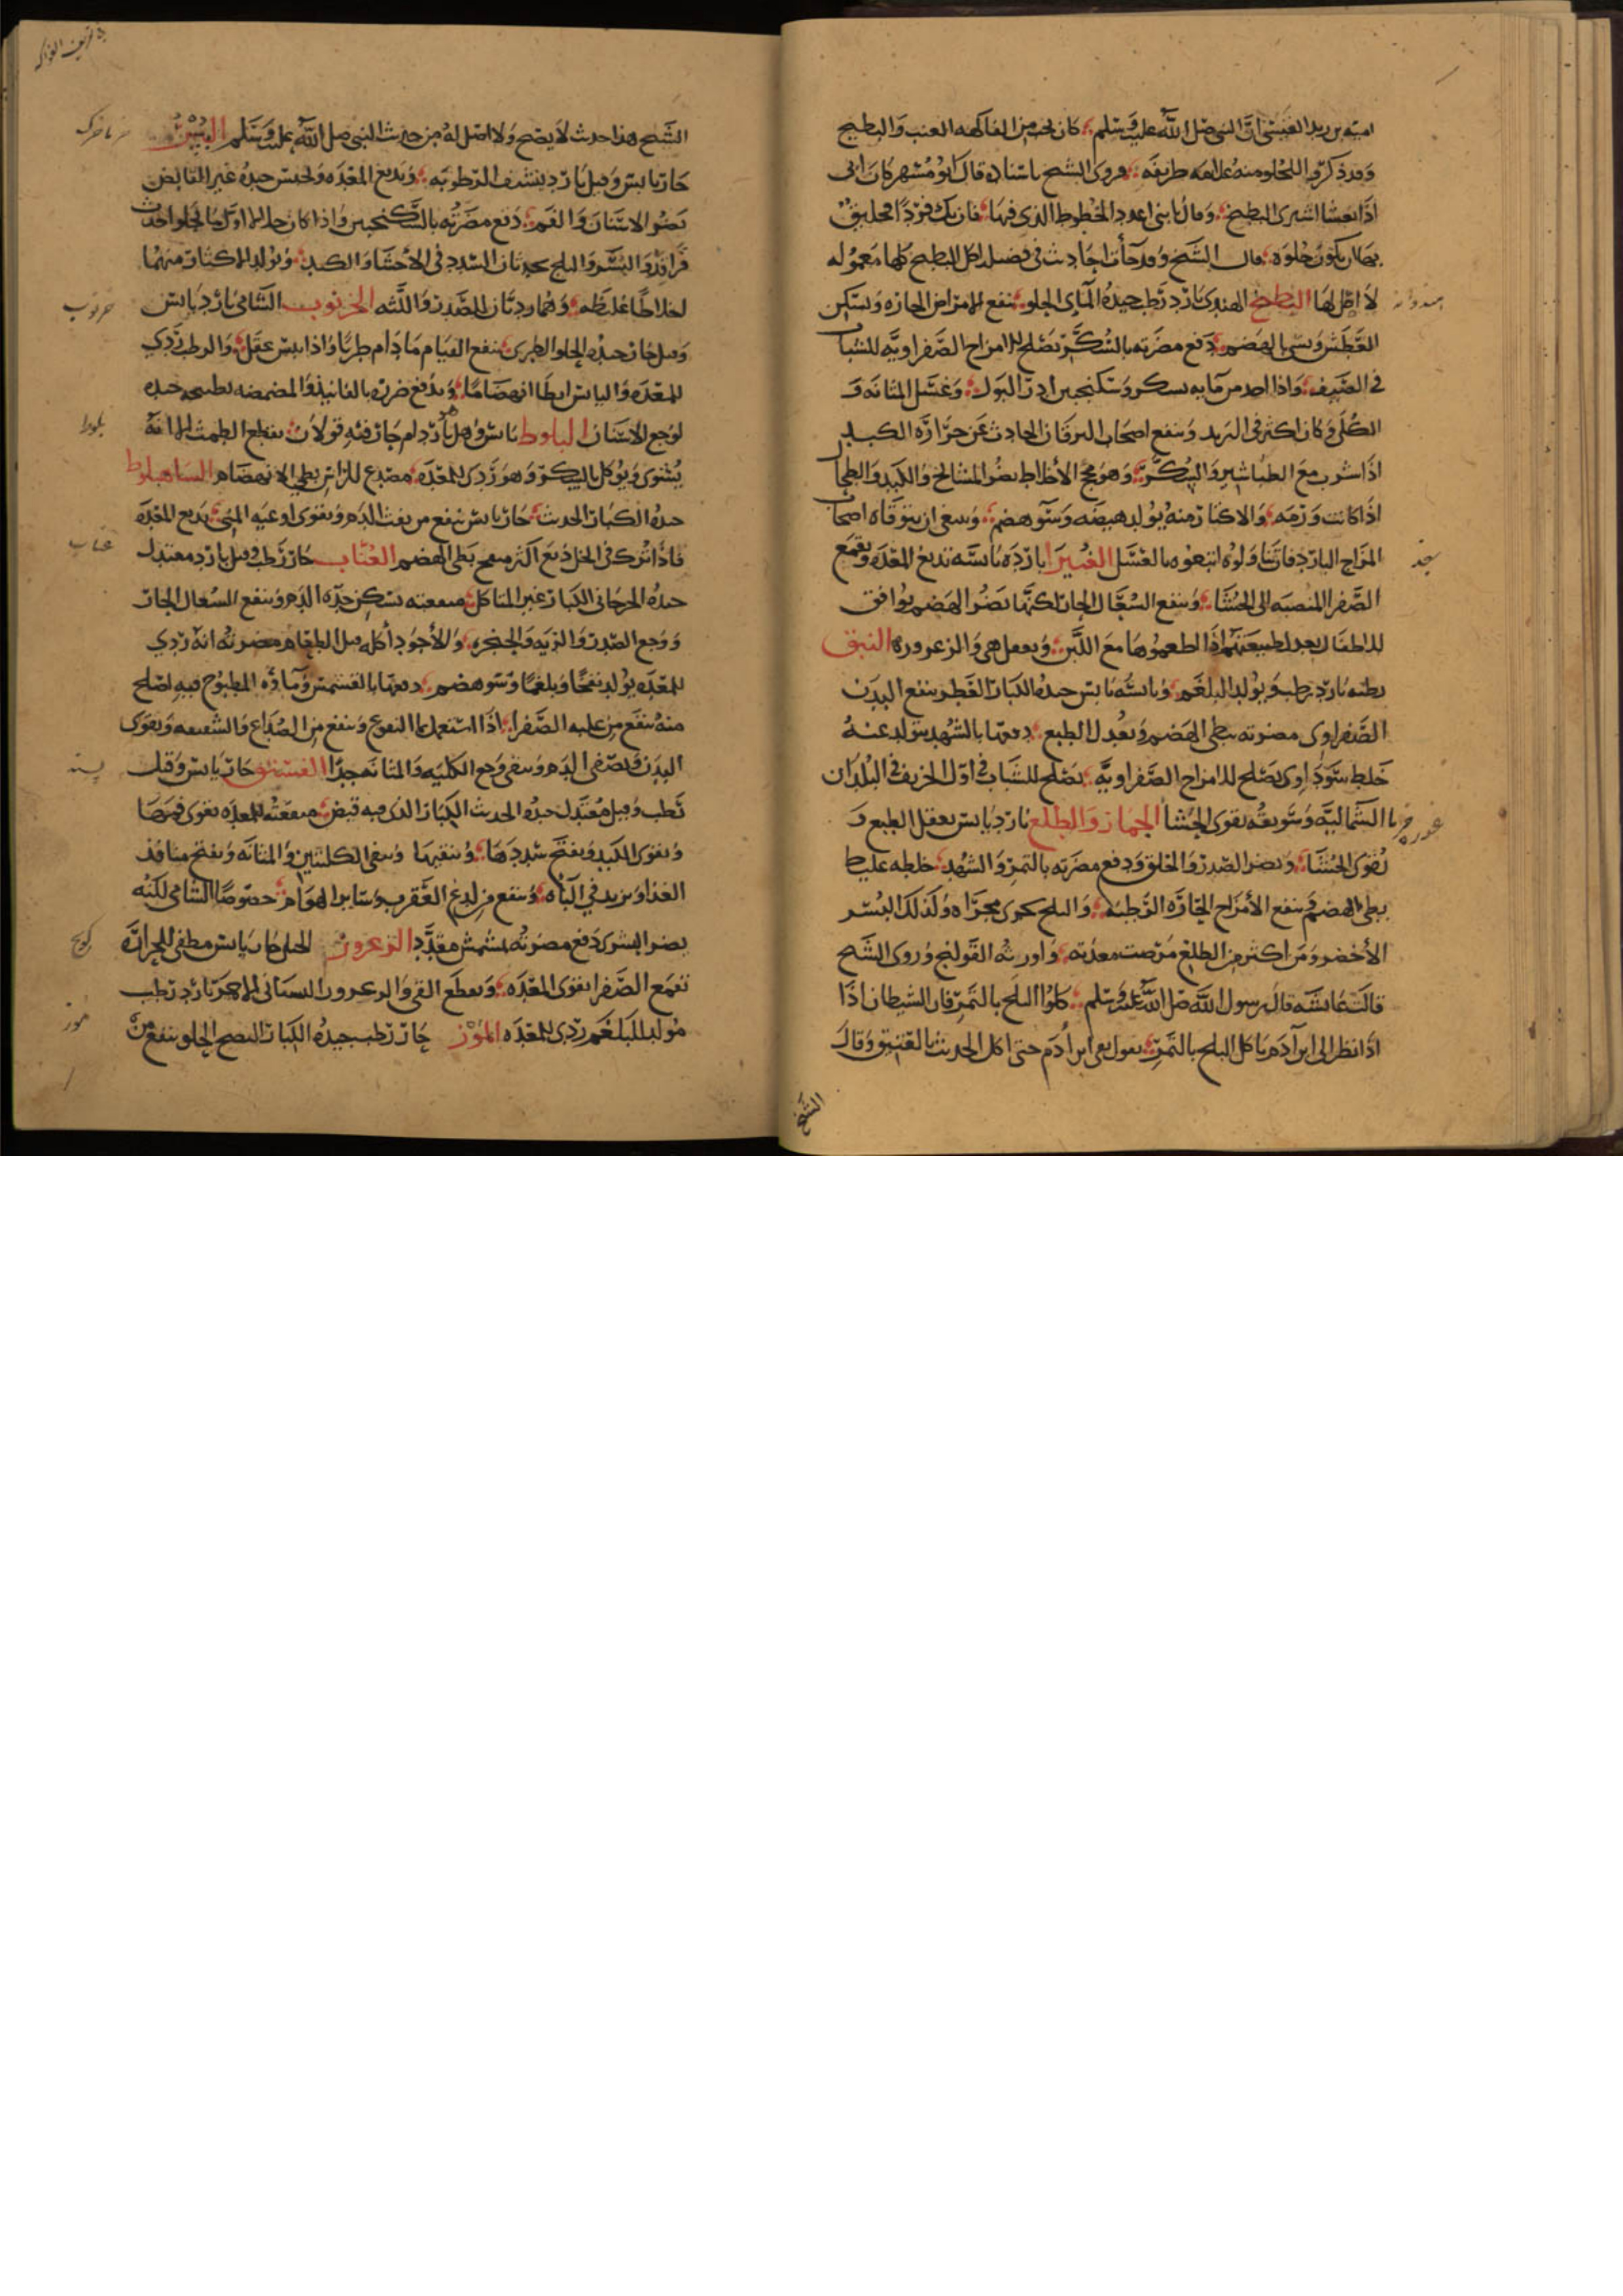 امية بن زيد العبسي ان النبي صلى الله عليه وسلم كان يحب من الفاكهة العنب والبطيخ
وقد ذكر في الحلو منه على الفه طريقه وروى الشيخ باسناده قال ابو مسهر كان ابي
اذا اشترى البطيخ وقال يا بني اعدد الخطوط الذي فيها فان يك فردا فخليق
بها ان يكون حلوة قال الشيخ وقد جأت احاديث في فضل اكل البطيخ كلها معموله
لا اصل لها البطيخ الهندي بارد رطب جيده المآي الحلو ينفع الامراض الحارة ويسكن
العطش ويسي الهضم دفع مضرته بالسكر يصلح للامزاج الصفراوية للشباب
في الصيف واذا اخذ من مآيه بسكر وسكنجبين ادر البول وغسل المثانه و
الكلى وكان اكثر في التبريد وينفع اصحاب اليرقان الحادث عن حرارة الكبد
اذا شرب مع الطباشير والسكر وهو يفجج الأخلاط يضر المشائخ والكبد والطحال
اذا كانت ورمه والاكثار منه يولد هيضه وسو هضم وينبغي ان يتوقاه اصحاب
المزاج البارد فان تناولوه اتبعوه بالعسل الغبيرا باردة يابسه تدبغ المعده وتقمع
الصفرا المنصبه الى الحشا وينفع السعال الحار لكنها يضر الهضم يوافق
للاطفال يعدل طبيعتهم اذا اطعموها مع اللبن ويفعل هي والزعرور النبق
رطبه بارد رطب ويولد البلغم ويابسه يابس جيده الكبار العطر ينفع البدن
الصفراوي مضرته بطي الهضم ويعدل الطبع دفعها بالشهد يتولد عنه
خلط سوداوي يصلح للامزاج الصفراوية يصلح للشباب في اول الخريف في البلدان
الشمالية وسويقه يقوي الحشا الجمار والطلع بارد يابس يعقل الطبع و
يقوي الحشا ويضر الصدر والحلق ودفع مضرته بالتمر والشهد خلطه غليظ
بطي الهضم ينفع الأمزاج الحارة الرطبه والبلح يجري مجراه وكذلك البسر
الأخضر ومن اكثر من الطلع مرضت معدته واورثه القولنج وروى الشيخ
قالت عائشه قال رسول الله صلى الله عليه وسلم كلوا البلح بالتمر فان الشيطان اذا
اذا نظر الى ابن آدم ياكل البلح بالتمر يقول بقي ابن آدم حتى اكل الحديث بالعتيق وقال
الشيخ
هندوانه
سنجد
الشيخ هذا حديث لا يصح ولا اصل له من حديث النبي صلى الله عليه وسلم البسر
حار يابس وقيل بارد ينشف الرطوبه ويدبغ المعده ولحبس جيده غير القابض
يضر الاسنان والفم دفع مضرته بالسكنجبين واذا كان خلا الاول ما يحلو احدث
قراقر والبسر والبلح يحدثان السدد في الأحشا والكبد ويولد الاكثار منهما
اخلاطا غليظه وهما رديان للصدر واللثه الخرنوب الشامي بارد يابس
وقيل حار جيده الحلو الطري ينفع القيام ما دام طريا واذا يبس عقل والرطب ردي
للمعده واليابس ابطا انهضاما ويدفع ضرره بالفانيذ والمضمضه بطبيخه جيده
لوجع الاسنان البلوط يابس وهل بارد ام حار فيه قولان يقطع الطمث الا انه
يشوى ويوكل بالسكر وهو ردي للمعده مصدع للراس بطي الانهضام الساهبلوط
جيده الكبار الحديث حار يابس ينفع من نفث الدم ويقوى اوعيه المني يدبغ المعده
فاذا ترك في الخل دبغ اكثر منفخ بطي الهضم العناب حار رطب وقيل بارد معتدل
جيده الجرجاني الكبار غير المتاكل منفعته تسكن حدة الدم وينفع السعال الحار
ووجع الصدر والريه والحنجره والأجود أكله قبل الطعام مضرته انه ردي
للمعده يولد نفخا وبلغما وسو هضم دفعها بالقشمش وماؤه المطبوخ فيه اصلح
منه ينفع من غلبه الصفرا اذا استعمل ما النقوع وينفع من الصداع والشقيقه ويقوي
البدن ويصفي الدم وينقي وجع الكليه والمثانه جدا الفستق حار يابس وقيل
رطب وقيل معتدل جيده الحديث الكبار الذي فيه قبض منفعته للمعده يقوى فمها
ويقوى الكبد ويفتح سددها وينقيها وينقي الكليتين والمثانه ويفتح منافذ
الغذا ويزيد في الباه وينفع من لدغ العقرب وسائر الهوام خصوصا الشامي لكنه
يضر البشرى دفع مضرته بمشمش مقدد الزعرور الجبلي حار يابس مطفي للحرارة
يقمع الصفرا يقوى المعده ويقطع القي والزعرور البستاني الاحمر بارد رطب
مولد للبلغم ردي للمعده الموز حار رطب جيده الكبار النضج الحلو ينفع من
خرنوب
بلوط
عناب
پسته
موز